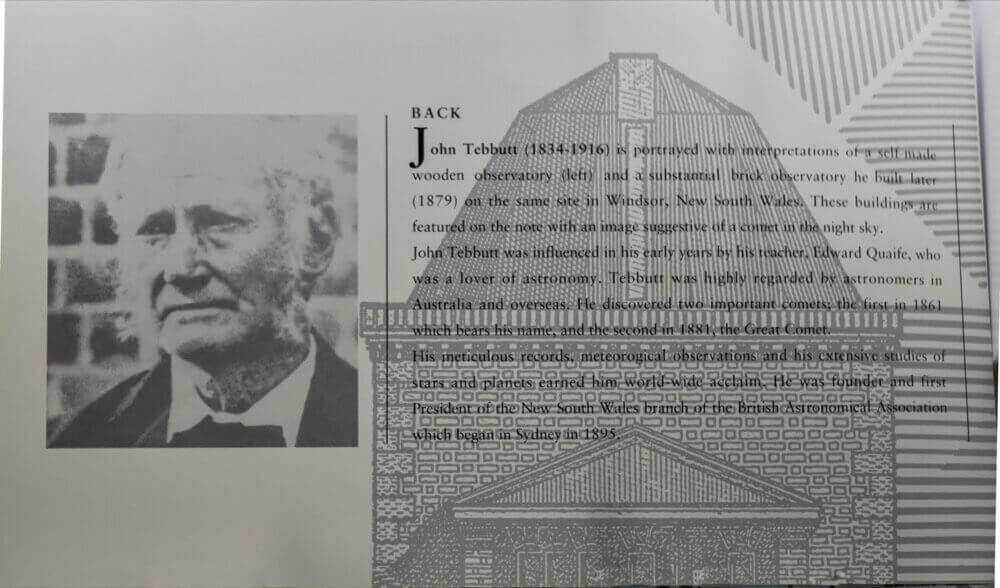 BACK
John Tebbutt (1834-1916) is portrayed with interpretations of a self-made
wooden observatory (left) and a substantial brick observatory he built later
(1879) on the same site in Windsor, New South Wales. These buildings are
featured on the note with an image suggestive of a comet in the night sky.
John Tebbutt was influenced in his early years by his teacher, Edward Quaife, who
was a lover of astronomy. Tebbutt was highly regarded by astronomers in
Australia and overseas. He discovered two important comets; the first in 1861
which bears his name, and the second in 1881, the Great Comet.
His meticulous records, meteorogical observations and his extensive studies of
stars and planets earned him world-wide acclaim. He was founder and first
President of the New South Wales branch of the British Astronomical Association
which began in Sydney in 1895.